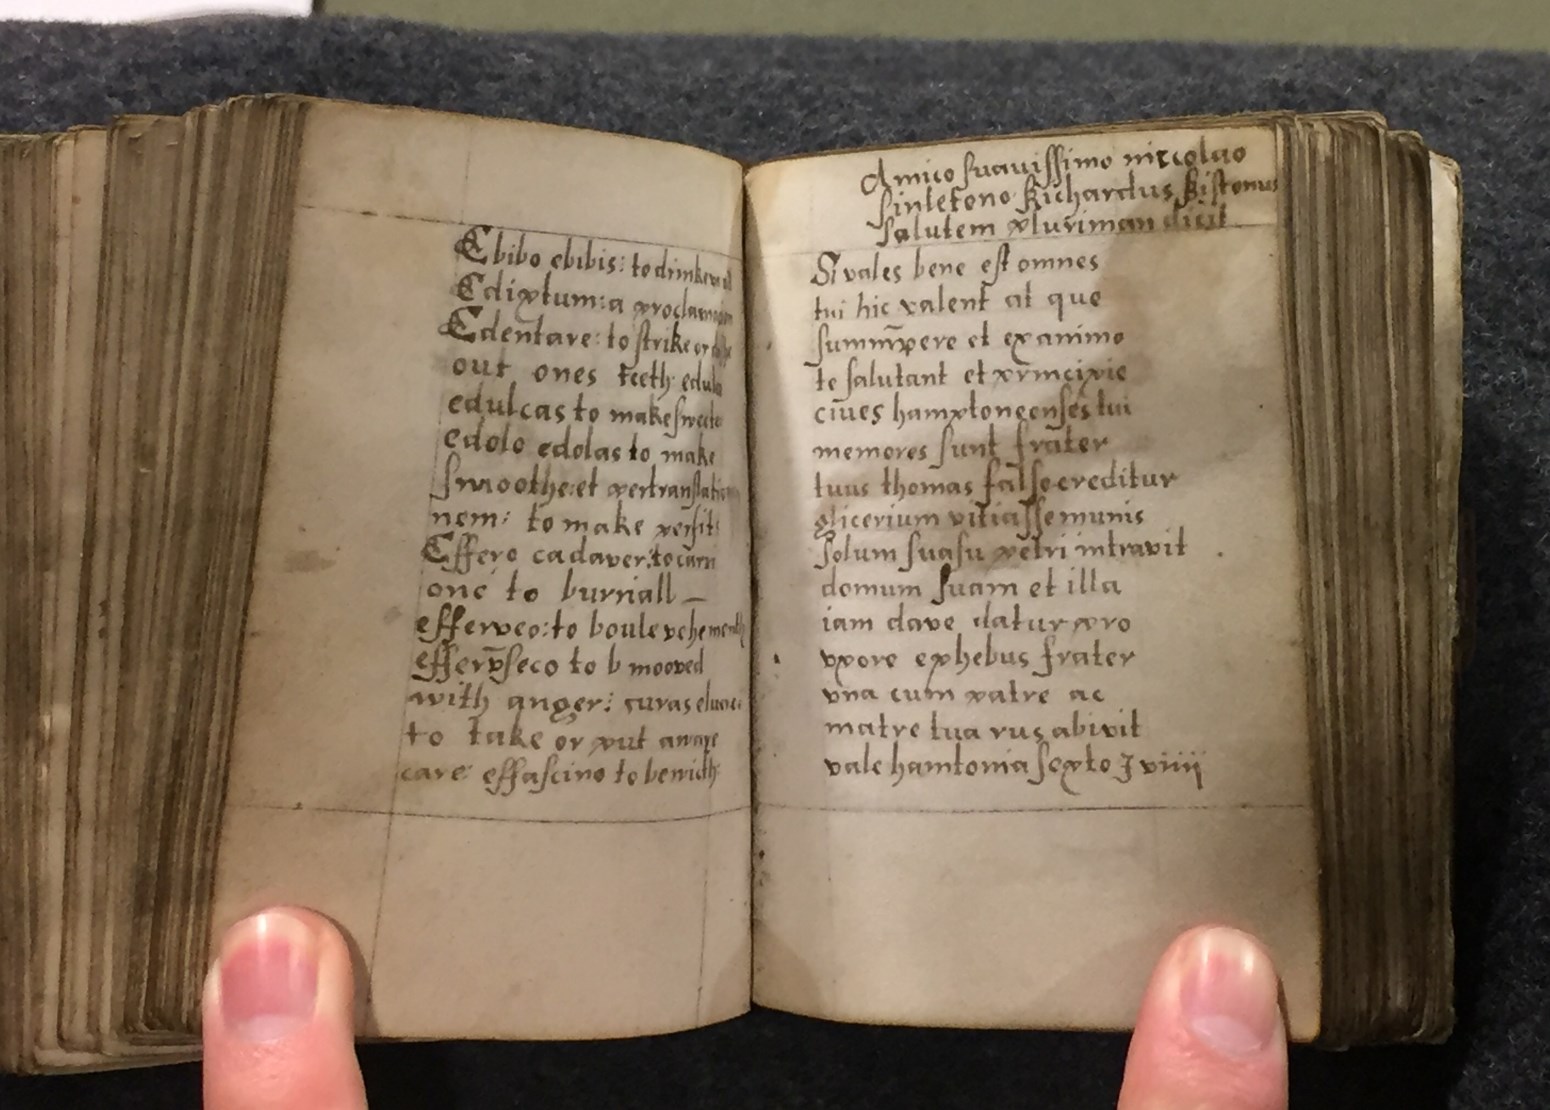 Ebibo ebibis: to drinke
Edixtum: a proclamation
Edentare: to strike or
out ones teeth: edulco
edulcas to make sweete
edolo edolas to make
smoothe: et pertranslatio
nem: to make perfit:
Effero cadaver: to carri
one to burriall —
efferveo: to boule vehementli
effervseco to b mooved
with anger: curas
to take or put awaye
care: effascino to bewich:
Amico suauissimo niccolao
sinletono Richardus kistonus
salutem plurimam dicit
Si vales bene est omnes
tui hic valent at que
summp̄ere et ex animo
te salutant et princixie
ciues hamptoneenses tui
memores sunt frater
tuus thomas falso creditur
glicerium vitiasse munis
solum suasu petri intravit
domum suam et illa
iam dave datur pro
vxore ephebus frater
vna cum patre ac
matre tua rus abivit
vale hamtonia sexto J viiij